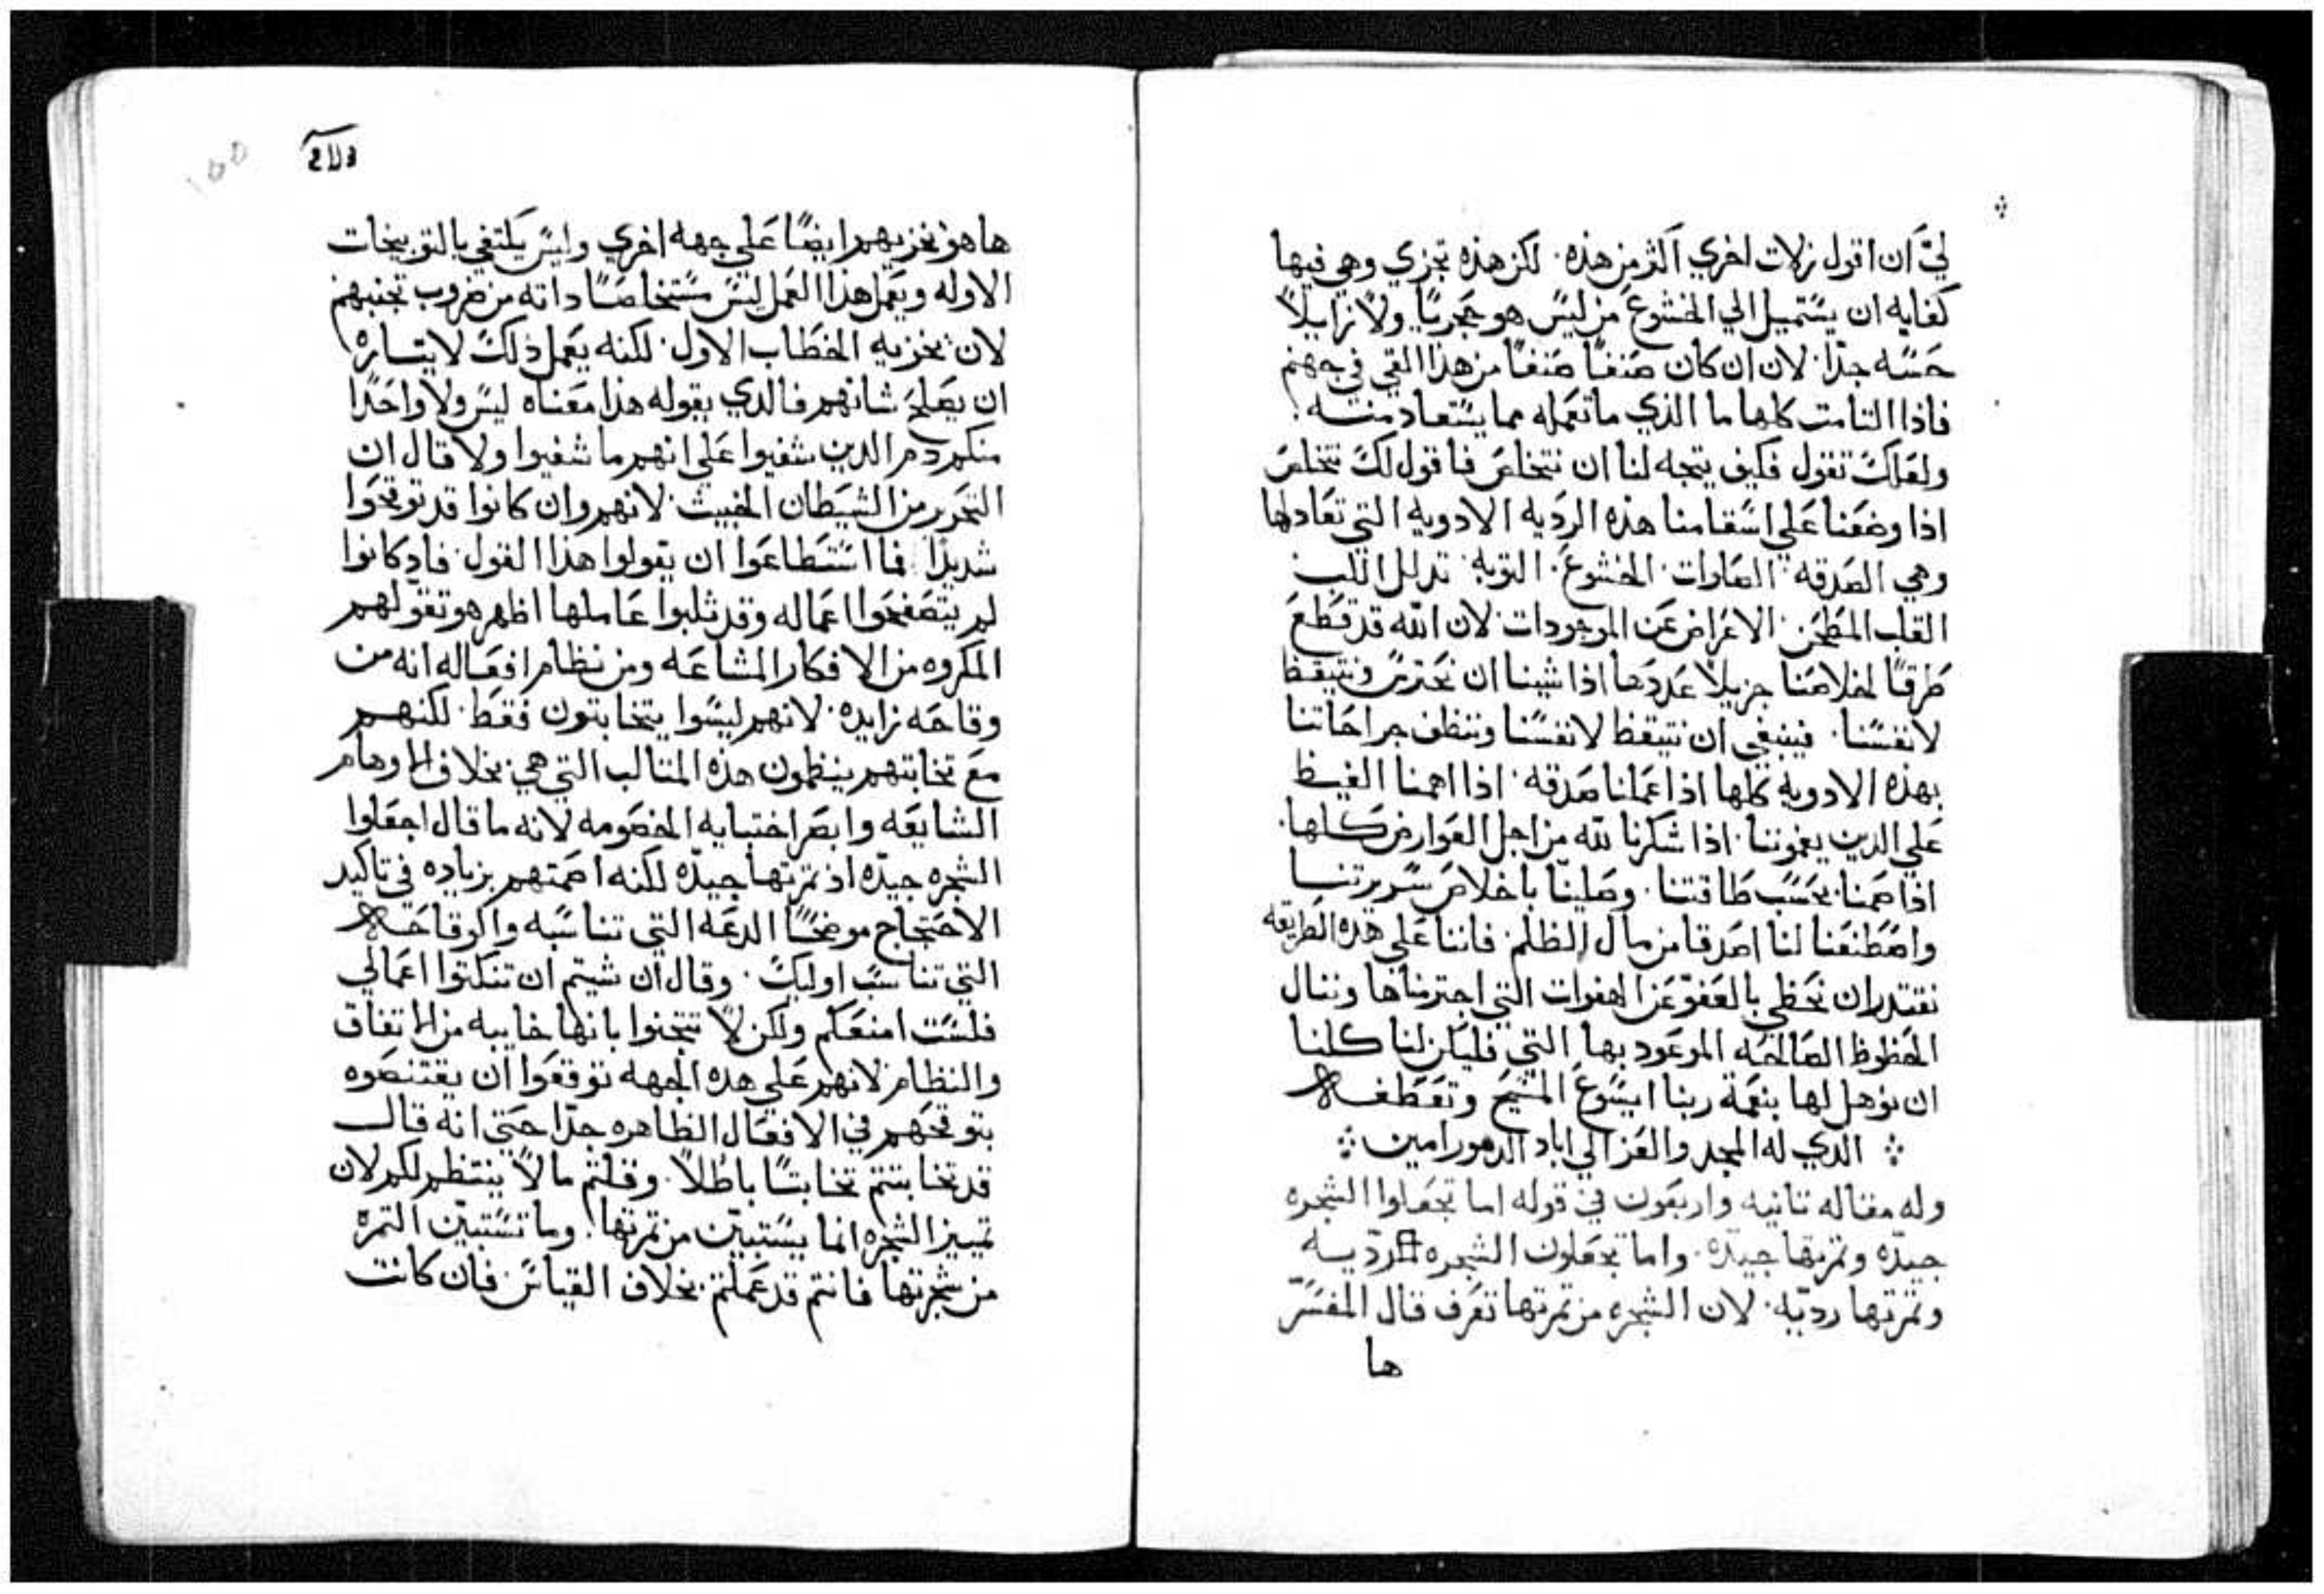 ليَّ ان اقول زلات اخري اكثر من هذه. لكن هذه تجزي وهي فيها
كفايه ان يستميل الي الخشوع من ليس هو حجريًا ولا زايلاً
حسه جدًا. لان ان كان صنفًا صنفًا من هذا القي في جهنم
فاذا التامت كلها ما الذي ما تعمله مما يستعاد منه.
ولعلك تقول فكيف يتجه لنا ان نتخلص فاقول لك نتخلص
اذا وضعنا علي اسقامنا هذه الرديه الادويه التي تعادلها
وهي الصدقه الصلوات. الخشوع. التوبه. تدلل اللب
القلب المطحن. الاعراض عن الموجودات. لان الله قد قطع
طرقًا لخلاصنا جزيلاً عددها اذا شينا ان نحترس ونتيقظ
لانفسنا. فينبغي ان نتيقظ لانفسنا وننظف جراحاتنا
بهذه الادويه كلها اذا عملنا صدقه. اذا اهمنا الغيظ
علي الدين يغموننا. اذا شكرنا لله من اجل العوارض كلها.
اذا صمنا بحسب طاقتنا. وصلينا باخلاص سريرتنا
واصطنعنا لنا اصدقا من مال الظلم. فاننا علي هذه الطريقه
نقتدر ان نحظي بالعفو عن الهفوات التي اجترمناها وننال
الحظوظ الصالحه الموعود بها التي فليكن لنا كلنا
ان نوهل لها بنعمة ربنا ايسوع المسيح وتعطفه
الدي له المجد والعز الي اباد الدهور امين
وله مقاله تانيه واربعون في قوله اما تجعلوا الشجره
جيدّه وتمرتها جيدّه. واما تجعلون الشجره رديّه
وتمرتها رديّه. لان الشجره من تمرتها تعرف قال المفسرّ
ها
ها هو نخزيهم ايضًا علي جهه اخري وليس يكتفي بالتوبيخات
الاوله ويعمل هذا العمل ليس مستخلصًا داته من ضروب تجنيهم
لان نخزيه الخطاب الاول. لكنه يعمل ذلك لايتساره
ان يصلح شانهم فالدي يقوله هذا معناه ليس ولا واحدًا
منكم دم الدين شفيوا علي انهم ما شفيوا ولا قال ان
التحرر من الشيطان الخبيث. لانهم وان كانوا قد توقحوا
شديدًا فما استطاعوا ان يقولوا هذا القول. فاد كانوا
لم يتصفحوا اعماله وقد ثلبوا عاملها اظهر هو تقولهم
المكروه من الافكار المشاعه ومن نظام افعاله انه من
وقاحه زايده. لانهم ليسوا يتخابتون فقط. لكنهم
مع تخابتهم ينظمون هذه المتالب التي هي بخلاف الاوهام
الشايعه وابصر اختبايه الخصومه لانه ما قال اجعلوا
الشجره جيدّه اذ تمرتها جيدّه لكنه اصمتهم بزياده في تاكيد
الاحتجاج موضحًا الدعه التي تناسبه والوقاحه
التي تناسب اوليك. وقال ان شيتم ان تنكتوا اعمالي
فلست امنعكم ولكن لا تتجنوا بانها خاييه من الاتفاق
والنظام. لانهم علي هذه الجهه توقعوا ان يقتنصوه
بتوقحهم في الافعال الظاهره جدًا حتي انه قال
قد تخابتتم تخابتًا باطلاً. وقلتم مالا ينتظم لكم لان
تمييز الشجره انما يستبين من تمرتها. وما تستبين التمرة
من شجرتها فانتم قد عملتم بخلاف القياس. فان كانت